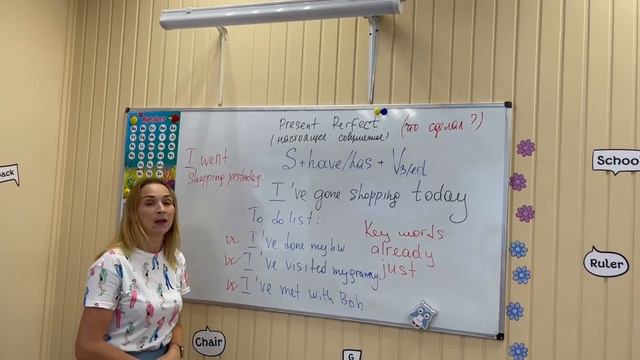 Alphabet
Present Perfect
(настоящее совершенное) (что сделал?)
I went
shopping yesterday.
S+have/has + V3/ed
I've gone shopping today
To do list:
I've done my hw
I've visited my granny
I've met with Bob
Key words
already
just
School
Ruler
Chair
G